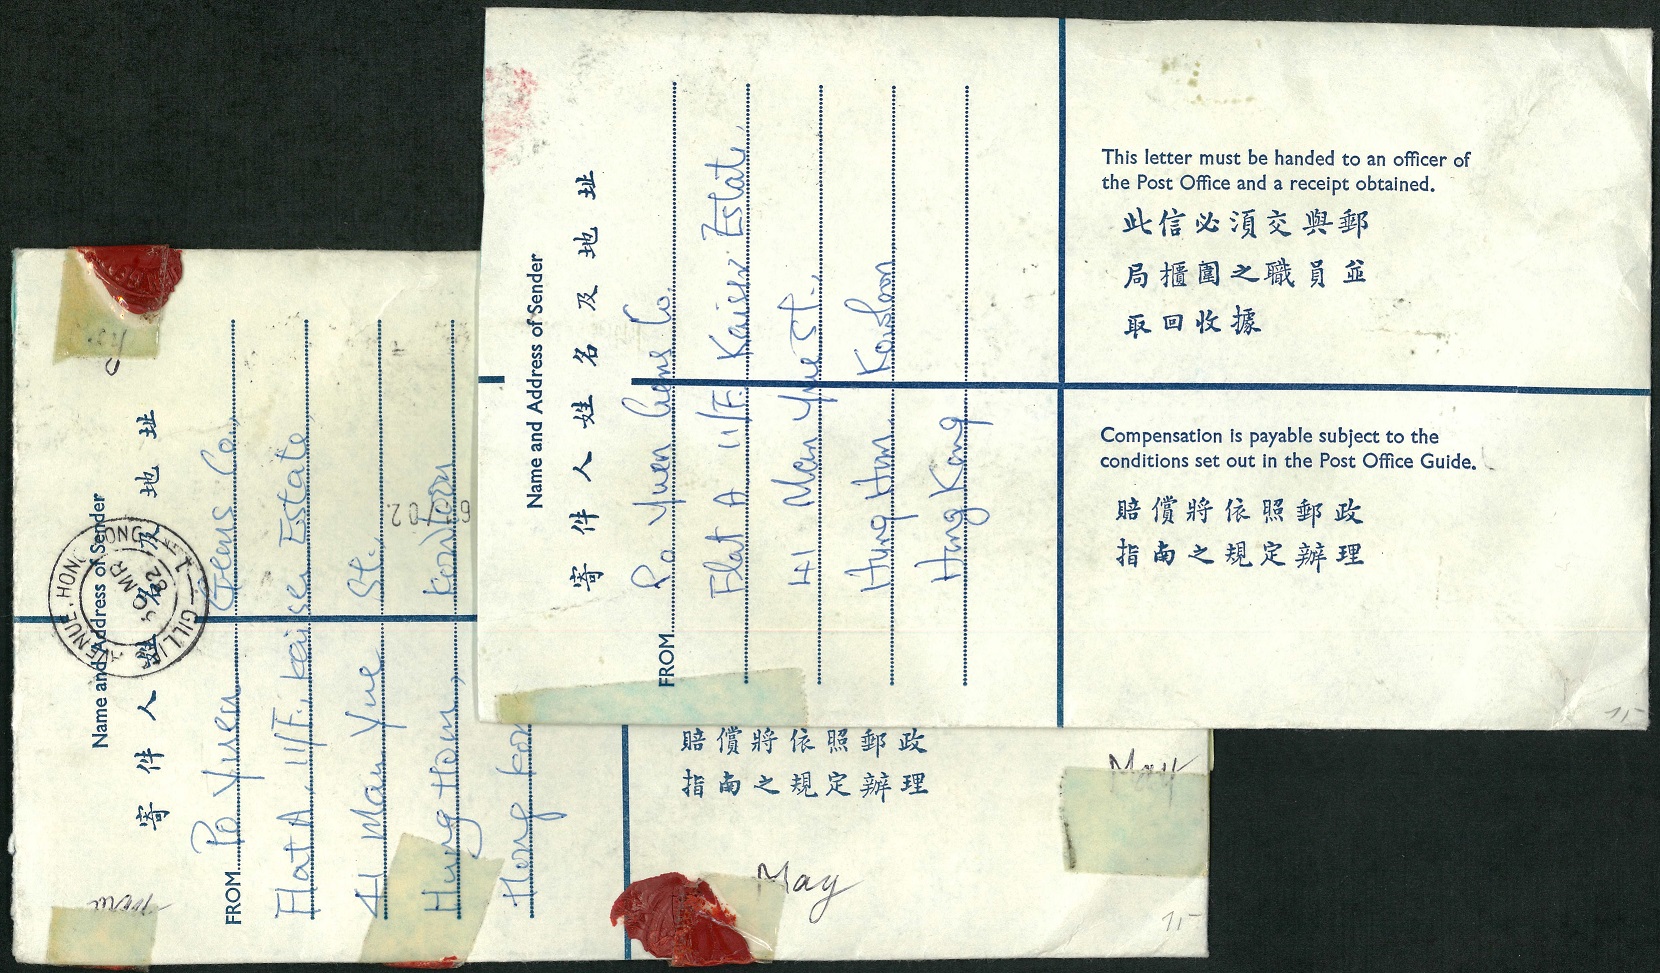 Name and Address of Sender
寄件人姓名及地址
FROM Po Yuen Gems Co.
Flat A 11/F. Kaiser Estate,
41 Man Yue St.,
Hung Hom. Kowloon
Hong Kong
This letter must be handed to an officer of
the Post Office and a receipt obtained.
此信必須交與郵
局櫃圍之職員並
取回收據
Compensation is payable subject to the
conditions set out in the Post Office Guide.
賠償將依照郵政
指南之規定辦理
Name and Address of Sender
寄件人姓名及地址
FROM Po Yuen Gems Co.,
Flat A, 11/F., Kaiser Estate,
41 Man Yue St.,
Hung Hom, Kowloon
Hong Kon
GILLIES AVENUE, HONG KONG
30 MR
82
賠償將依照郵政
指南之規定辦理
May
May